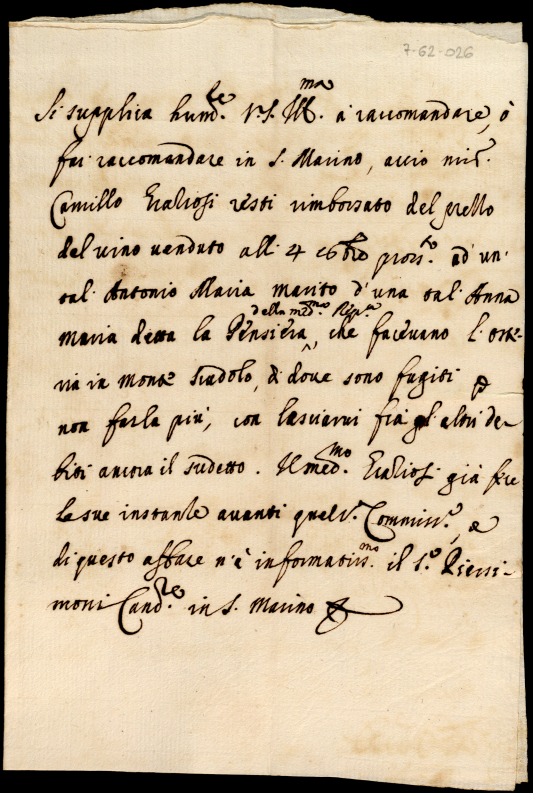 7-62-026
Si supplica hum.te V.S. Ill.ma à raccomandare, ò
far raccomandare in S. Marino, acciò mis.r
Camillo resti rimborsato del prezzo
del vino venduto alli 4 8bre pross.o ad un'
tal' Antonio Maria marito d'una tal' Anna
della med.ma
Maria detta la Pensiera, che facevano l'oste-
ria in Monte Scudolo, di dove sono fugiti p
non farla più, con lasciarvi frà gl'altri de-
biti ancora il sudetto. Il med.mo già fece
le sue instanze avanti quel S.r Commiss.o, e
di questo affare n'è informatiss.mo il S.r Piersi-
moni Canc.re in S. Marino